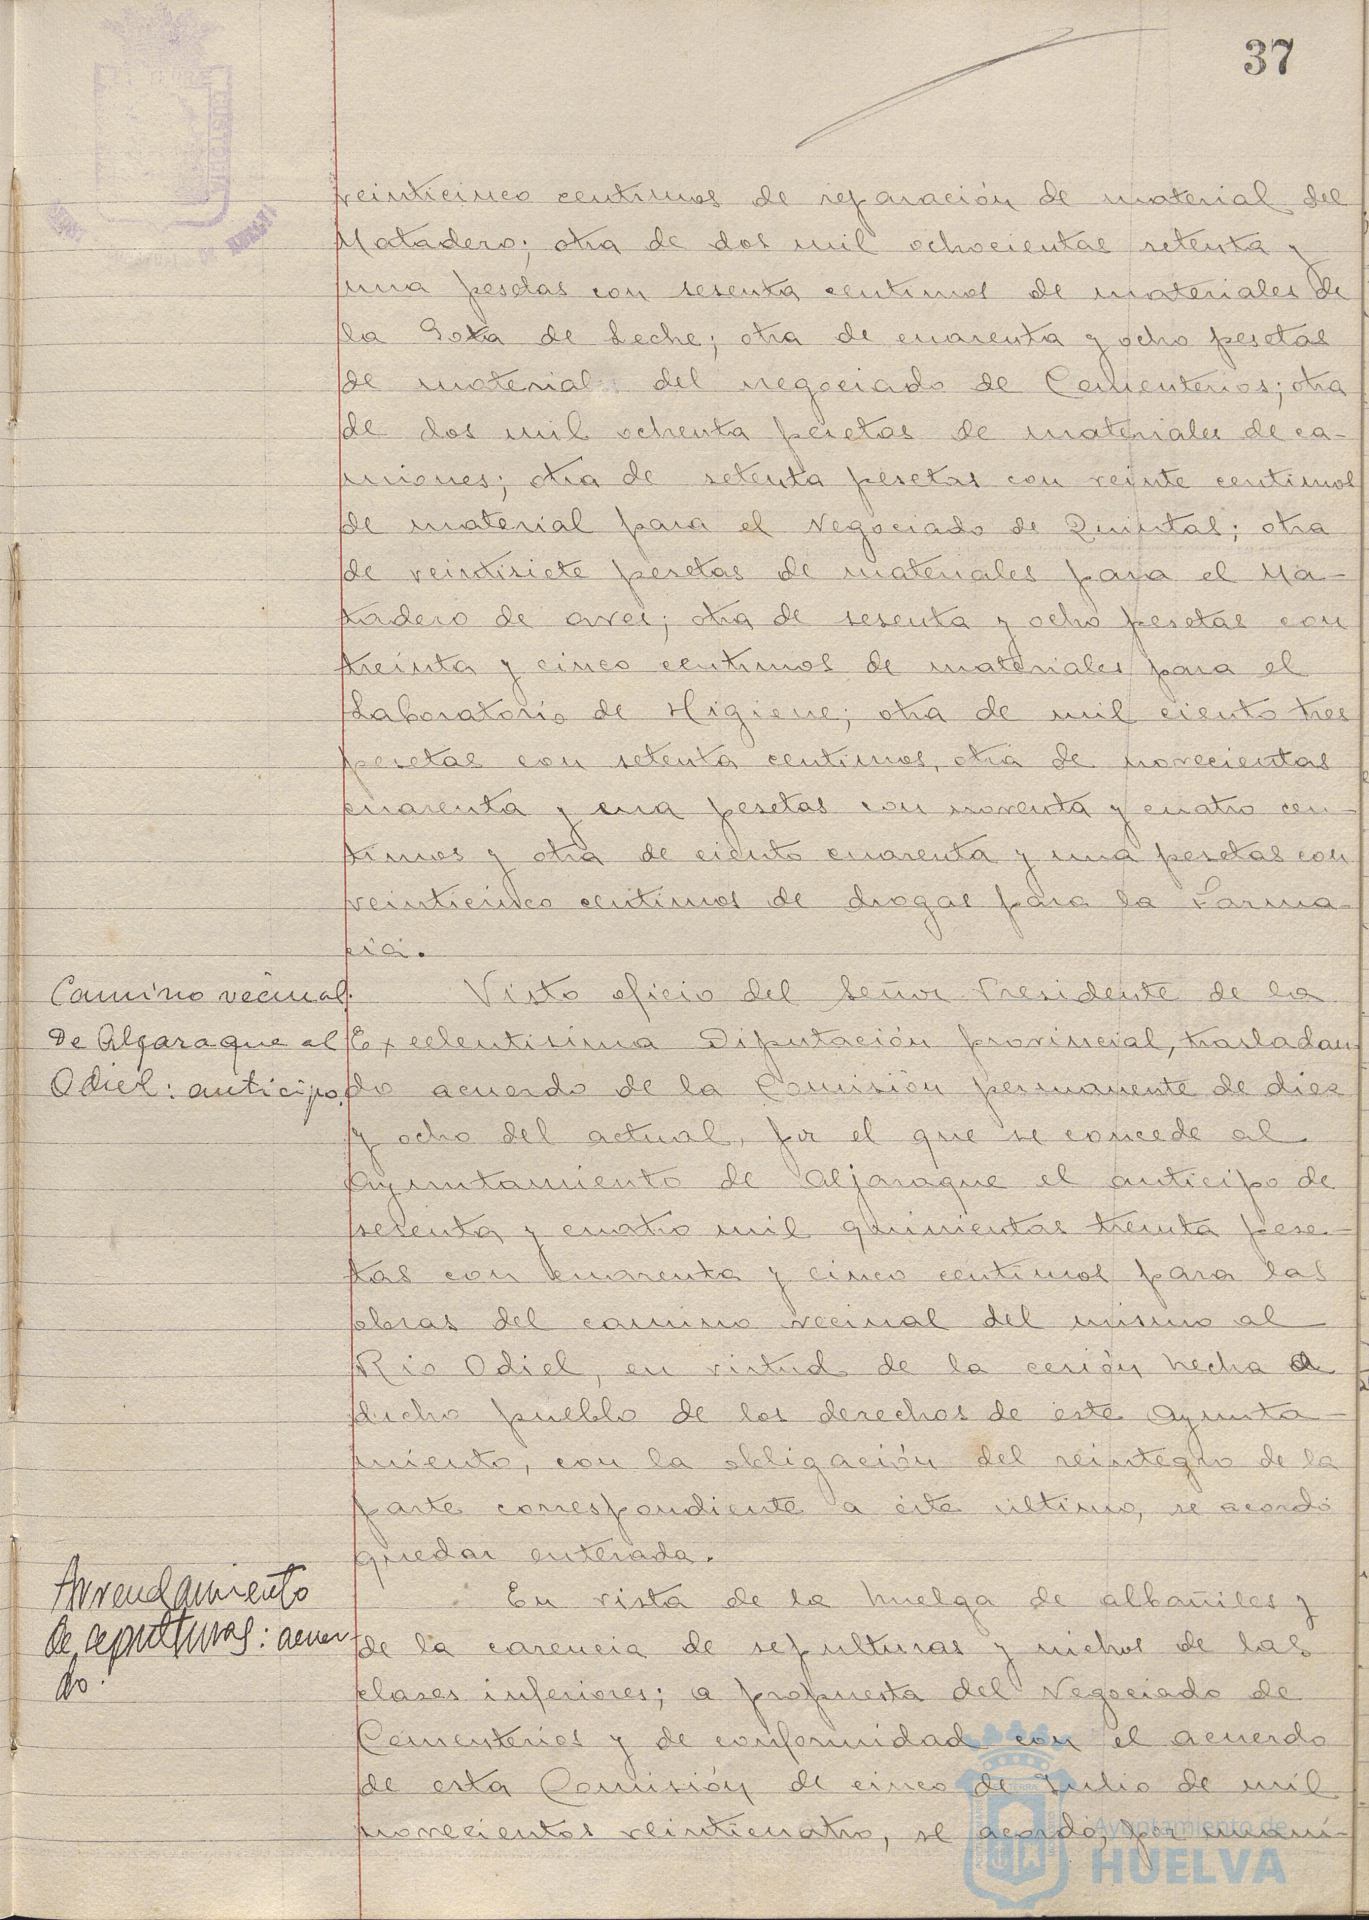 37
veinticinco centimos de reparación de material del
Matadero; otra de dos mil ochocientas setenta y
una pesetas con sesenta centimos de materiales de
la Gota de Leche; otra de cuarenta y ocho pesetas
de material del negociado de Cementerios; otra
de dos mil ochenta pesetas de materiales de ca-
miones; otra de setenta pesetas con veinte centimos
de material para el Negociado de Quintas; otra
de veintisiete pesetas de materiales para el Ma-
tadero de aves; otra de sesenta y ocho pesetas con
treinta y cinco centimos de materiales para el
Laboratorio de Higiene; otra de mil ciento tres
pesetas con setenta centimos, otra de novecientas
cuarenta y una pesetas con noventa y cuatro cen-
timos y otra de ciento cuarenta y una pesetas con
veinticinco centimos de drogas para la Farma-
cia.
Camino vecinal.
De Algaraque al
Odiel: anticipo.
Visto oficio del Señor Presidente de la
Excelentisima Diputación provincial, trasladan-
do acuerdo de la Comisión permanente de diez
y ocho del actual, por el que se concede al
Ayuntamiento de Aljaraque el anticipo de
sesenta y cuatro mil quinientas treinta pese-
tas con cuarenta y cinco centimos para las
obras del camino vecinal del mismo al
Rio Odiel, en virtud de la cesión hecha a
dicho pueblo de los derechos de este Ayunta-
miento, con la obligación del reintegro de la
parte correspondiente a éste último, se acordó
quedar enterada.
Arrendamiento
de sepulturas: acuer-
do.
En vista de la huelga de albañiles y
de la carencia de sepulturas y nichos de las
clases inferiores; a propuesta del Negociado de
Cementerios y de conformidad con el acuerdo
de esta Comisión de cinco de Julio de mil
novecientos veinticuatro, se acordó, por unani-
Ayuntamiento de
HUELVA